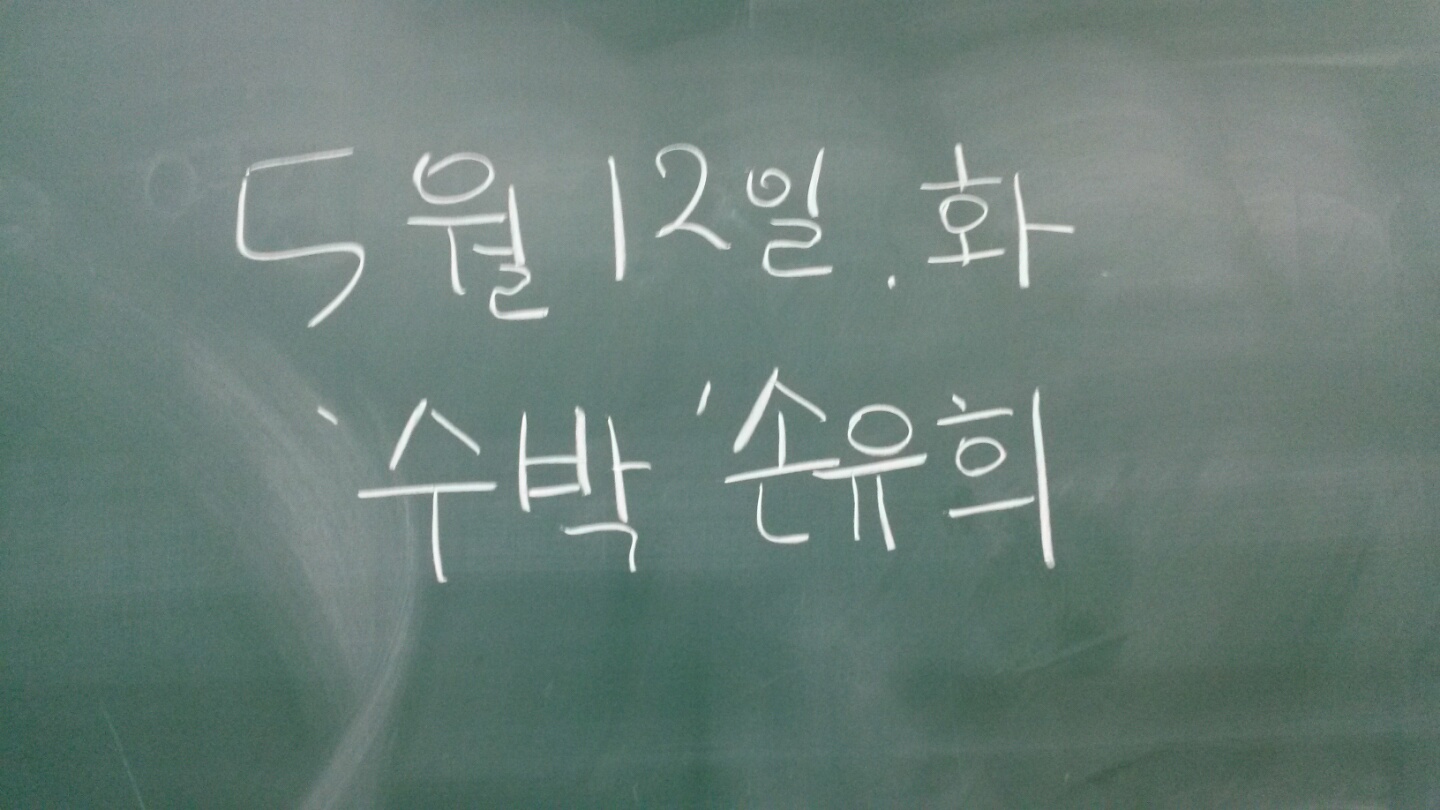 5월 12일. 화
'수박' 손유희